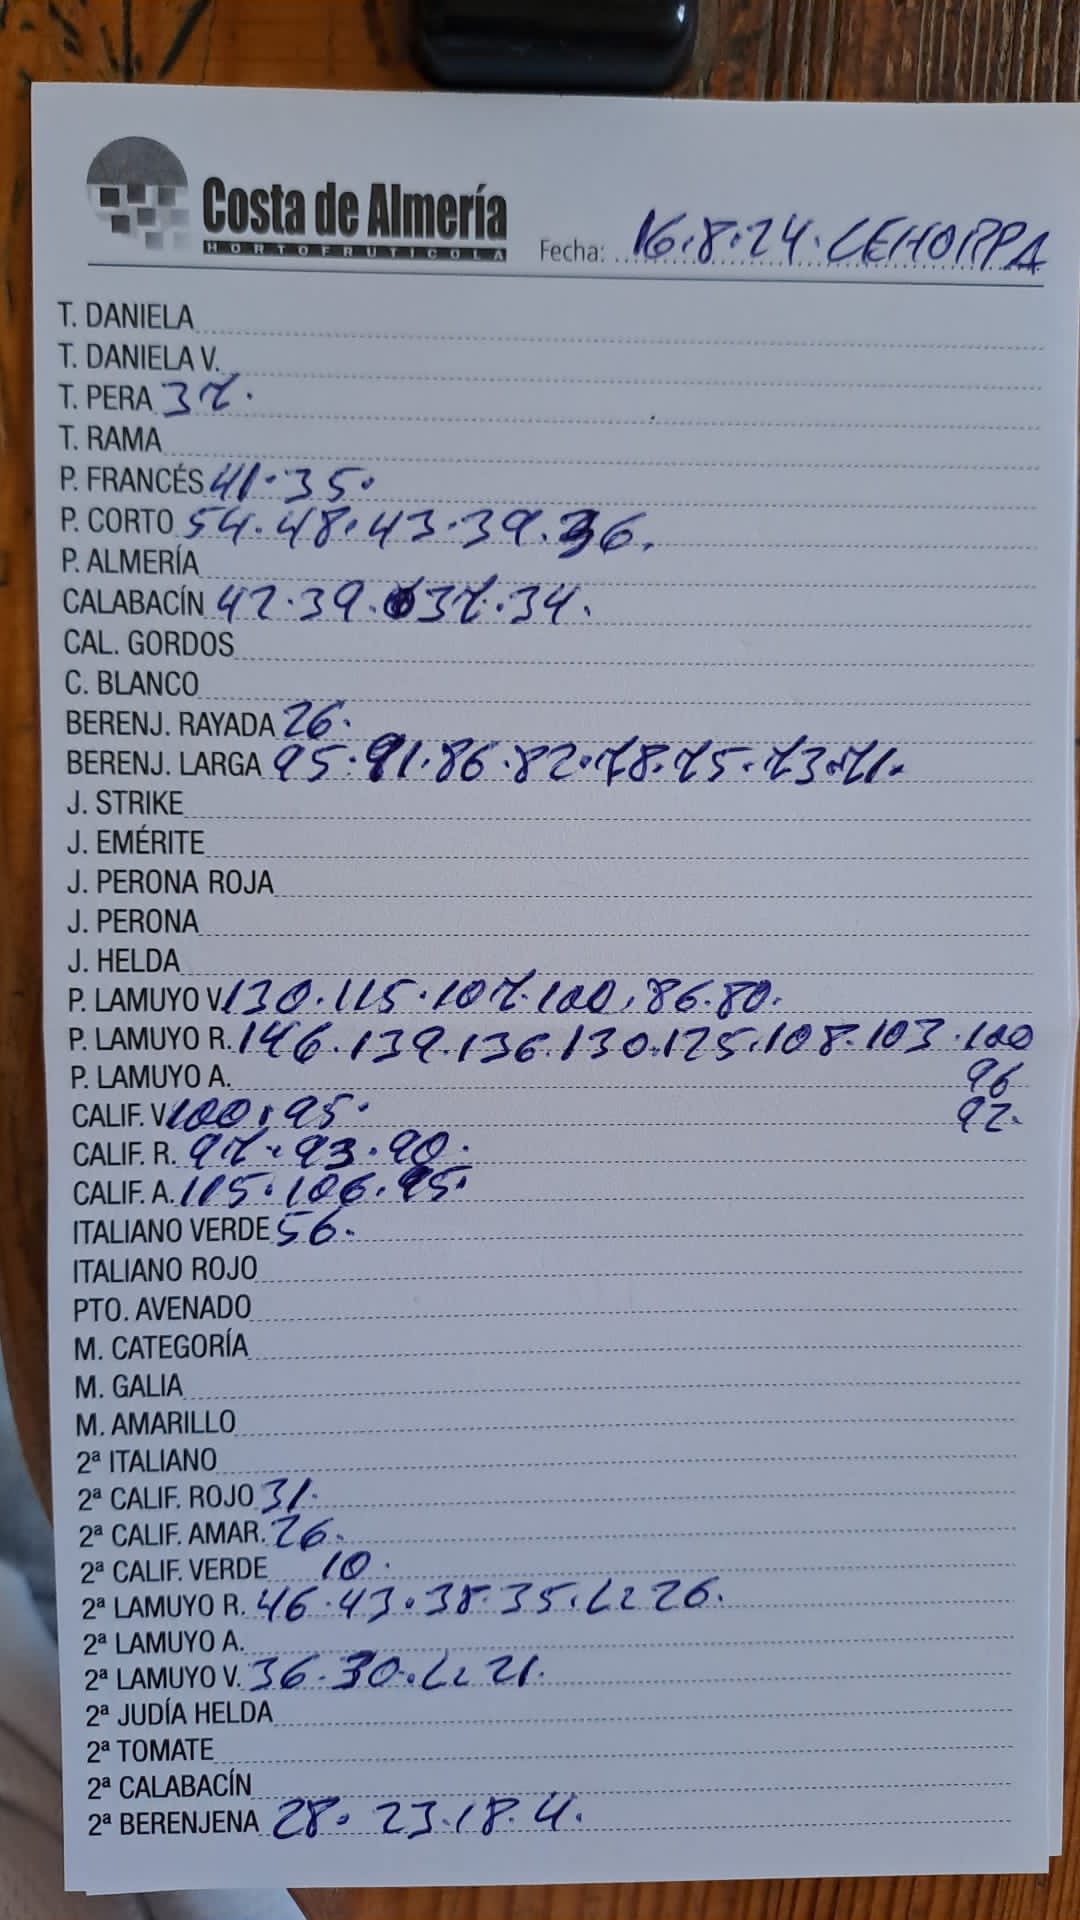 Costa de Almería
HORTOFRUTICOLA
Fecha: 16.8.24. CEHORPA
T. DANIELA
T. DANIELA V.
T. PERA 37.
T. RAMA
P. FRANCÉS 41.35.
P. CORTO 54.48.43.39.36.
P. ALMERÍA
CALABACÍN 42.39.37.34.
CAL. GORDOS
C. BLANCO
BERENJ. RAYADA 26.
BERENJ. LARGA 95.91.86.82.78.75.73.71.
J. STRIKE
J. EMÉRITE
J. PERONA ROJA
J. PERONA
J. HELDA
P. LAMUYO V. 130.115.107.100.86.80.
P. LAMUYO R. 146.139.136.130.125.108.103.100
P. LAMUYO A. 96
CALIF. V. 100.95. 92.
CALIF. R. 97.93.90.
CALIF. A. 115.106.95.
ITALIANO VERDE 56.
ITALIANO ROJO
PTO. AVENADO
M. CATEGORÍA
M. GALIA
M. AMARILLO
2ª ITALIANO
2ª CALIF. ROJO 31.
2ª CALIF. AMAR. 26.
2ª CALIF. VERDE 10.
2ª LAMUYO R. 46.43.38.35. 26.
2ª LAMUYO A.
2ª LAMUYO V. 36.30. 21.
2ª JUDÍA HELDA
2ª TOMATE
2ª CALABACÍN
2ª BERENJENA 28. 23.18.4.